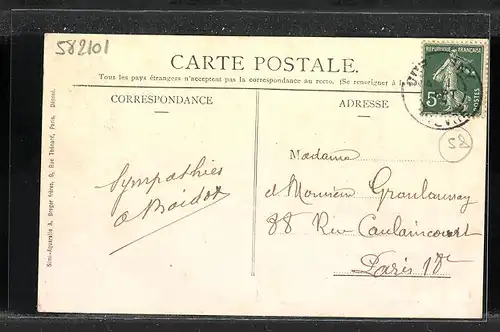 582101
CARTE POSTALE.
Tous les pays étrangers n'acceptent pas la correspondance au recto. (Se renseigner à la
CORRESPONDANCE
ADRESSE
RÉPUBLIQUE FRANÇAISE
5c
POSTES
58
Madame
et Monsieur
88 Rue Caulaincourt
Paris 18e
Sympathies
Simi-Aquarelle A. Breger frères, 9, Rue Thénard, Paris. Déposé.